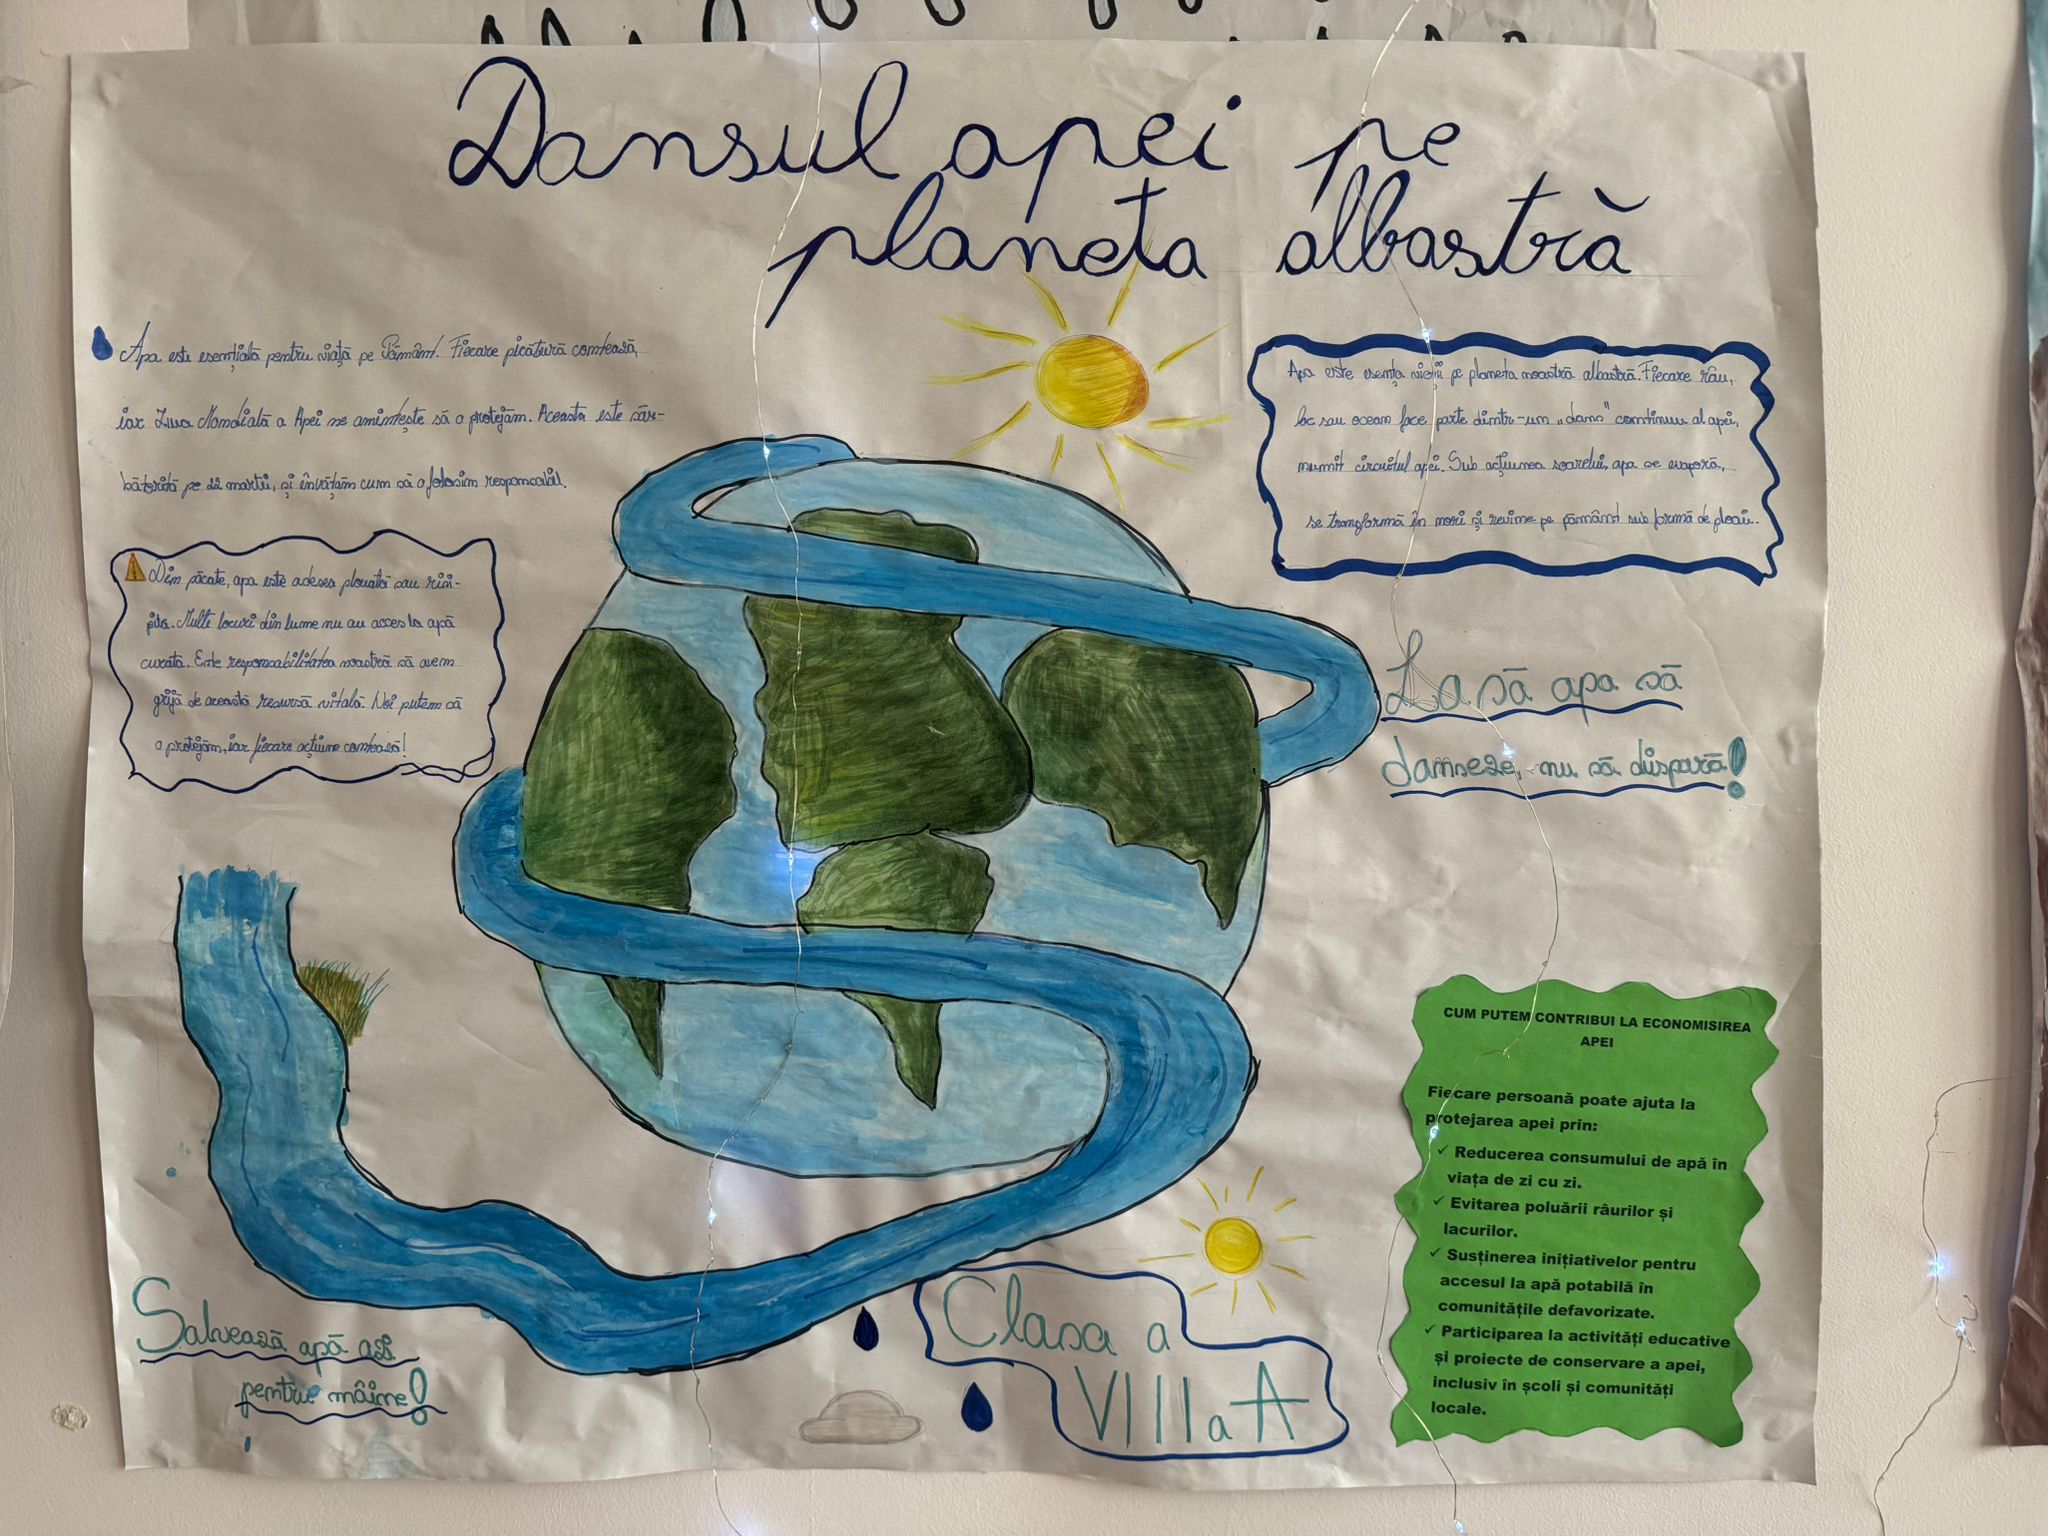 Dansul apei pe
planeta albastră
Apa este esențială pentru viață pe Pământ. Fiecare picătură contează,
iar Ziua Mondială a Apei ne amintește să o protejăm. Aceasta este săr-
bătorită pe 22 martie, și învățăm cum să o folosim responsabil.
Din păcate, apa este adesea poluată sau risi-
pită. Multe locuri din lume nu au acces la apă
curată. Este responsabilitatea noastră să avem
grijă de această resursă vitală. Noi putem să
o protejăm, iar fiecare acțiune contează!
Apa este esența vieții pe planeta noastră albastră. Fiecare râu,
lac sau ocean face parte dintr-un „dans" continuu al apei,
numit circuitul apei. Sub acțiunea soarelui, apa se evaporă,
se transformă în nori și revine pe pământ sub formă de ploaie.
La să apa să
danseze, nu să dispară!
CUM PUTEM CONTRIBUI LA ECONOMISIREA
APEI
Fiecare persoană poate ajuta la
protejarea apei prin:
✓ Reducerea consumului de apă în
viața de zi cu zi.
✓ Evitarea poluării râurilor și
lacurilor.
✓ Susținerea inițiativelor pentru
accesul la apă potabilă în
comunitățile defavorizate.
✓ Participarea la activități educative
și proiecte de conservare a apei,
inclusiv în școli și comunități
locale.
Salvează apă azi
pentru mâine!
Clasa a
VIII a A